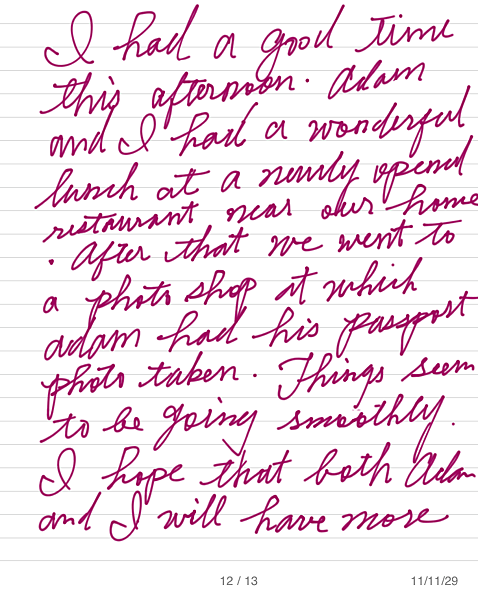 I had a good time
this afternoon. Adam
and I had a wonderful
lunch at a newly opened
restaurant near our home
. After that we went to
a photo shop at which
adam had his passport
photo taken. Things seem
to be going smoothly.
I hope that both Adam
and I will have more
12 / 13
11/11/29